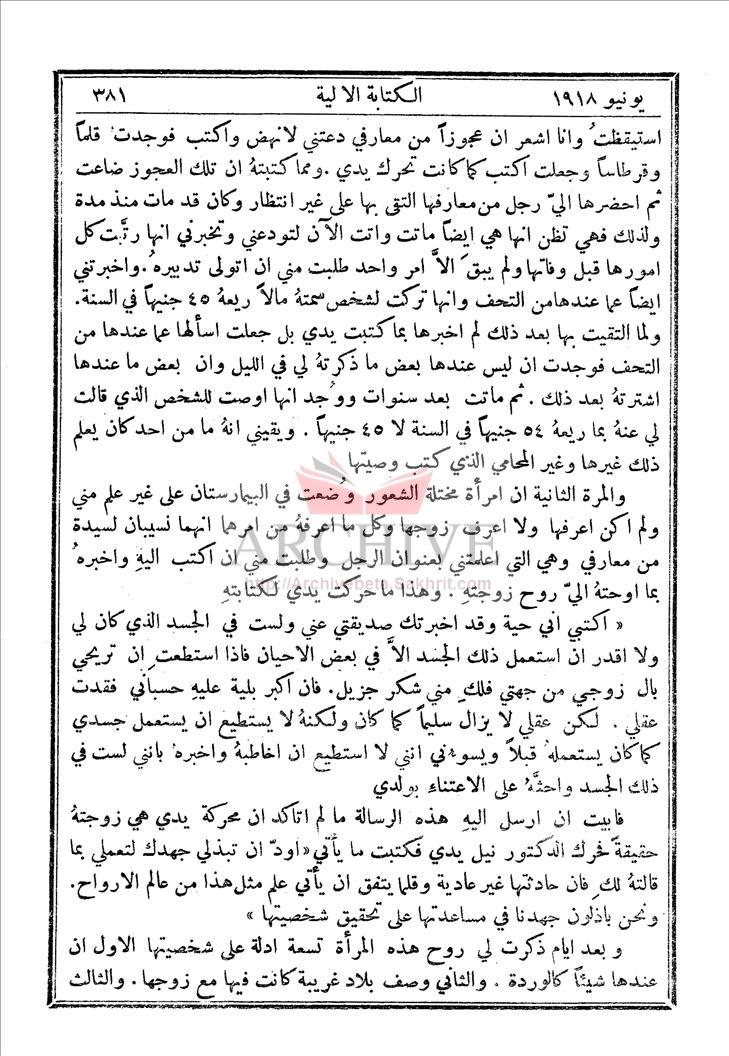 يونيو ١٩١٨
الكتابة الالية
٣٨١
استيقظتُ وانا اشعر ان عجوزاً من معارفي دعتني لانهض واكتب فوجدت قلماً
وقرطاساً وجعلت اكتب كما كانت تحرك يدي . ومما كتبتهُ ان تلك العجوز ضاعت
ثم احضرها اليّ رجل من معارفها التقى بها على غير انتظار وكان قد مات منذ مدة
ولذلك فهي تظن انها هي ايضاً ماتت واتت الآن لتودعني وتخبرني انها رتَّبت كل
امورها قبل وفاتها ولم يبقَ الاَّ امر واحد طلبت مني ان اتولى تدبيرهُ . واخبرتني
ايضاً عما عندها من التحف وانها تركت لشخص سمتهُ مالاً ريعهُ ٤٥ جنيهاً في السنة .
ولما التقيت بها بعد ذلك لم اخبرها بما كتبت يدي بل جعلت اسألها عما عندها من
التحف فوجدت ان ليس عندها بعض ما ذكرتهُ لي في الليل وان بعض ما عندها
اشترتهُ بعد ذلك . ثم ماتت بعد سنوات ووُجد انها اوصت للشخص الذي قالت
لي عنهُ بما ريعهُ ٥٤ جنيهاً في السنة لا ٤٥ جنيهاً . ويقيني انهُ ما من احد كان يعلم
ذلك غيرها وغير المحامي الذي كتب وصيتها
والمرة الثانية ان امرأة مختلة الشعور وُضعت في البيمارستان على غير علم مني
ولم اكن اعرفها ولا اعرف زوجها وكل ما اعرفهُ من امرهما انهما نسيبان لسيدة
من معارفي وهي التي اعلمتني بعنوان الرجل وطلبت مني ان اكتب اليهِ واخبرهُ
بما اوحتهُ اليّ روح زوجتهِ . وهذا ما حركت يدي لكتابتهِ
« اكتبي اني حية وقد اخبرتك صديقتي عني ولست في الجسد الذي كان لي
ولا اقدر ان استعمل ذلك الجسد الاَّ في بعض الاحيان فاذا استطعتِ ان تريحي
بال زوجي من جهتي فلكِ مني شكر جزيل . فان اكبر بلية عليهِ حسباني فقدت
عقلي . لكن عقلي لا يزال سليماً كما كان ولكنهُ لا يستطيع ان يستعمل جسدي
كما كان يستعملهُ قبلاً ويسوءني انني لا استطيع ان اخاطبهُ واخبرهُ بانني لست في
ذلك الجسد واحثَّهُ على الاعتناء بولدي
فابيت ان ارسل اليهِ هذه الرسالة ما لم اتاكد ان محركة يدي هي زوجتهُ
حقيقةً فحرك الدكتور نيل يدي فكتبت ما يأتي « اودّ ان تبذلي جهدك لتعملي بما
قالتهُ لكِ فان حادثتها غير عادية وقلما يتفق ان يأتي علم مثل هذا من عالم الارواح .
ونحن باذلون جهدنا في مساعدتها على تحقيق شخصيتها »
وبعد ايام ذكرت لي روح هذه المرأة تسعة ادلة على شخصيتها الاول ان
عندها شيئاً كالوردة . والثاني وصف بلاد غريبة كانت فيها مع زوجها . والثالث
ARCHIVE
http://Archivebeta.Sakhrit.com